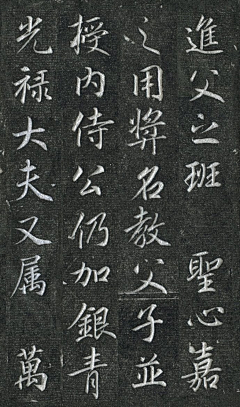 進父之班 聖心嘉
之用奬名教父子並
授內侍公仍加銀青
光祿大夫又属 萬